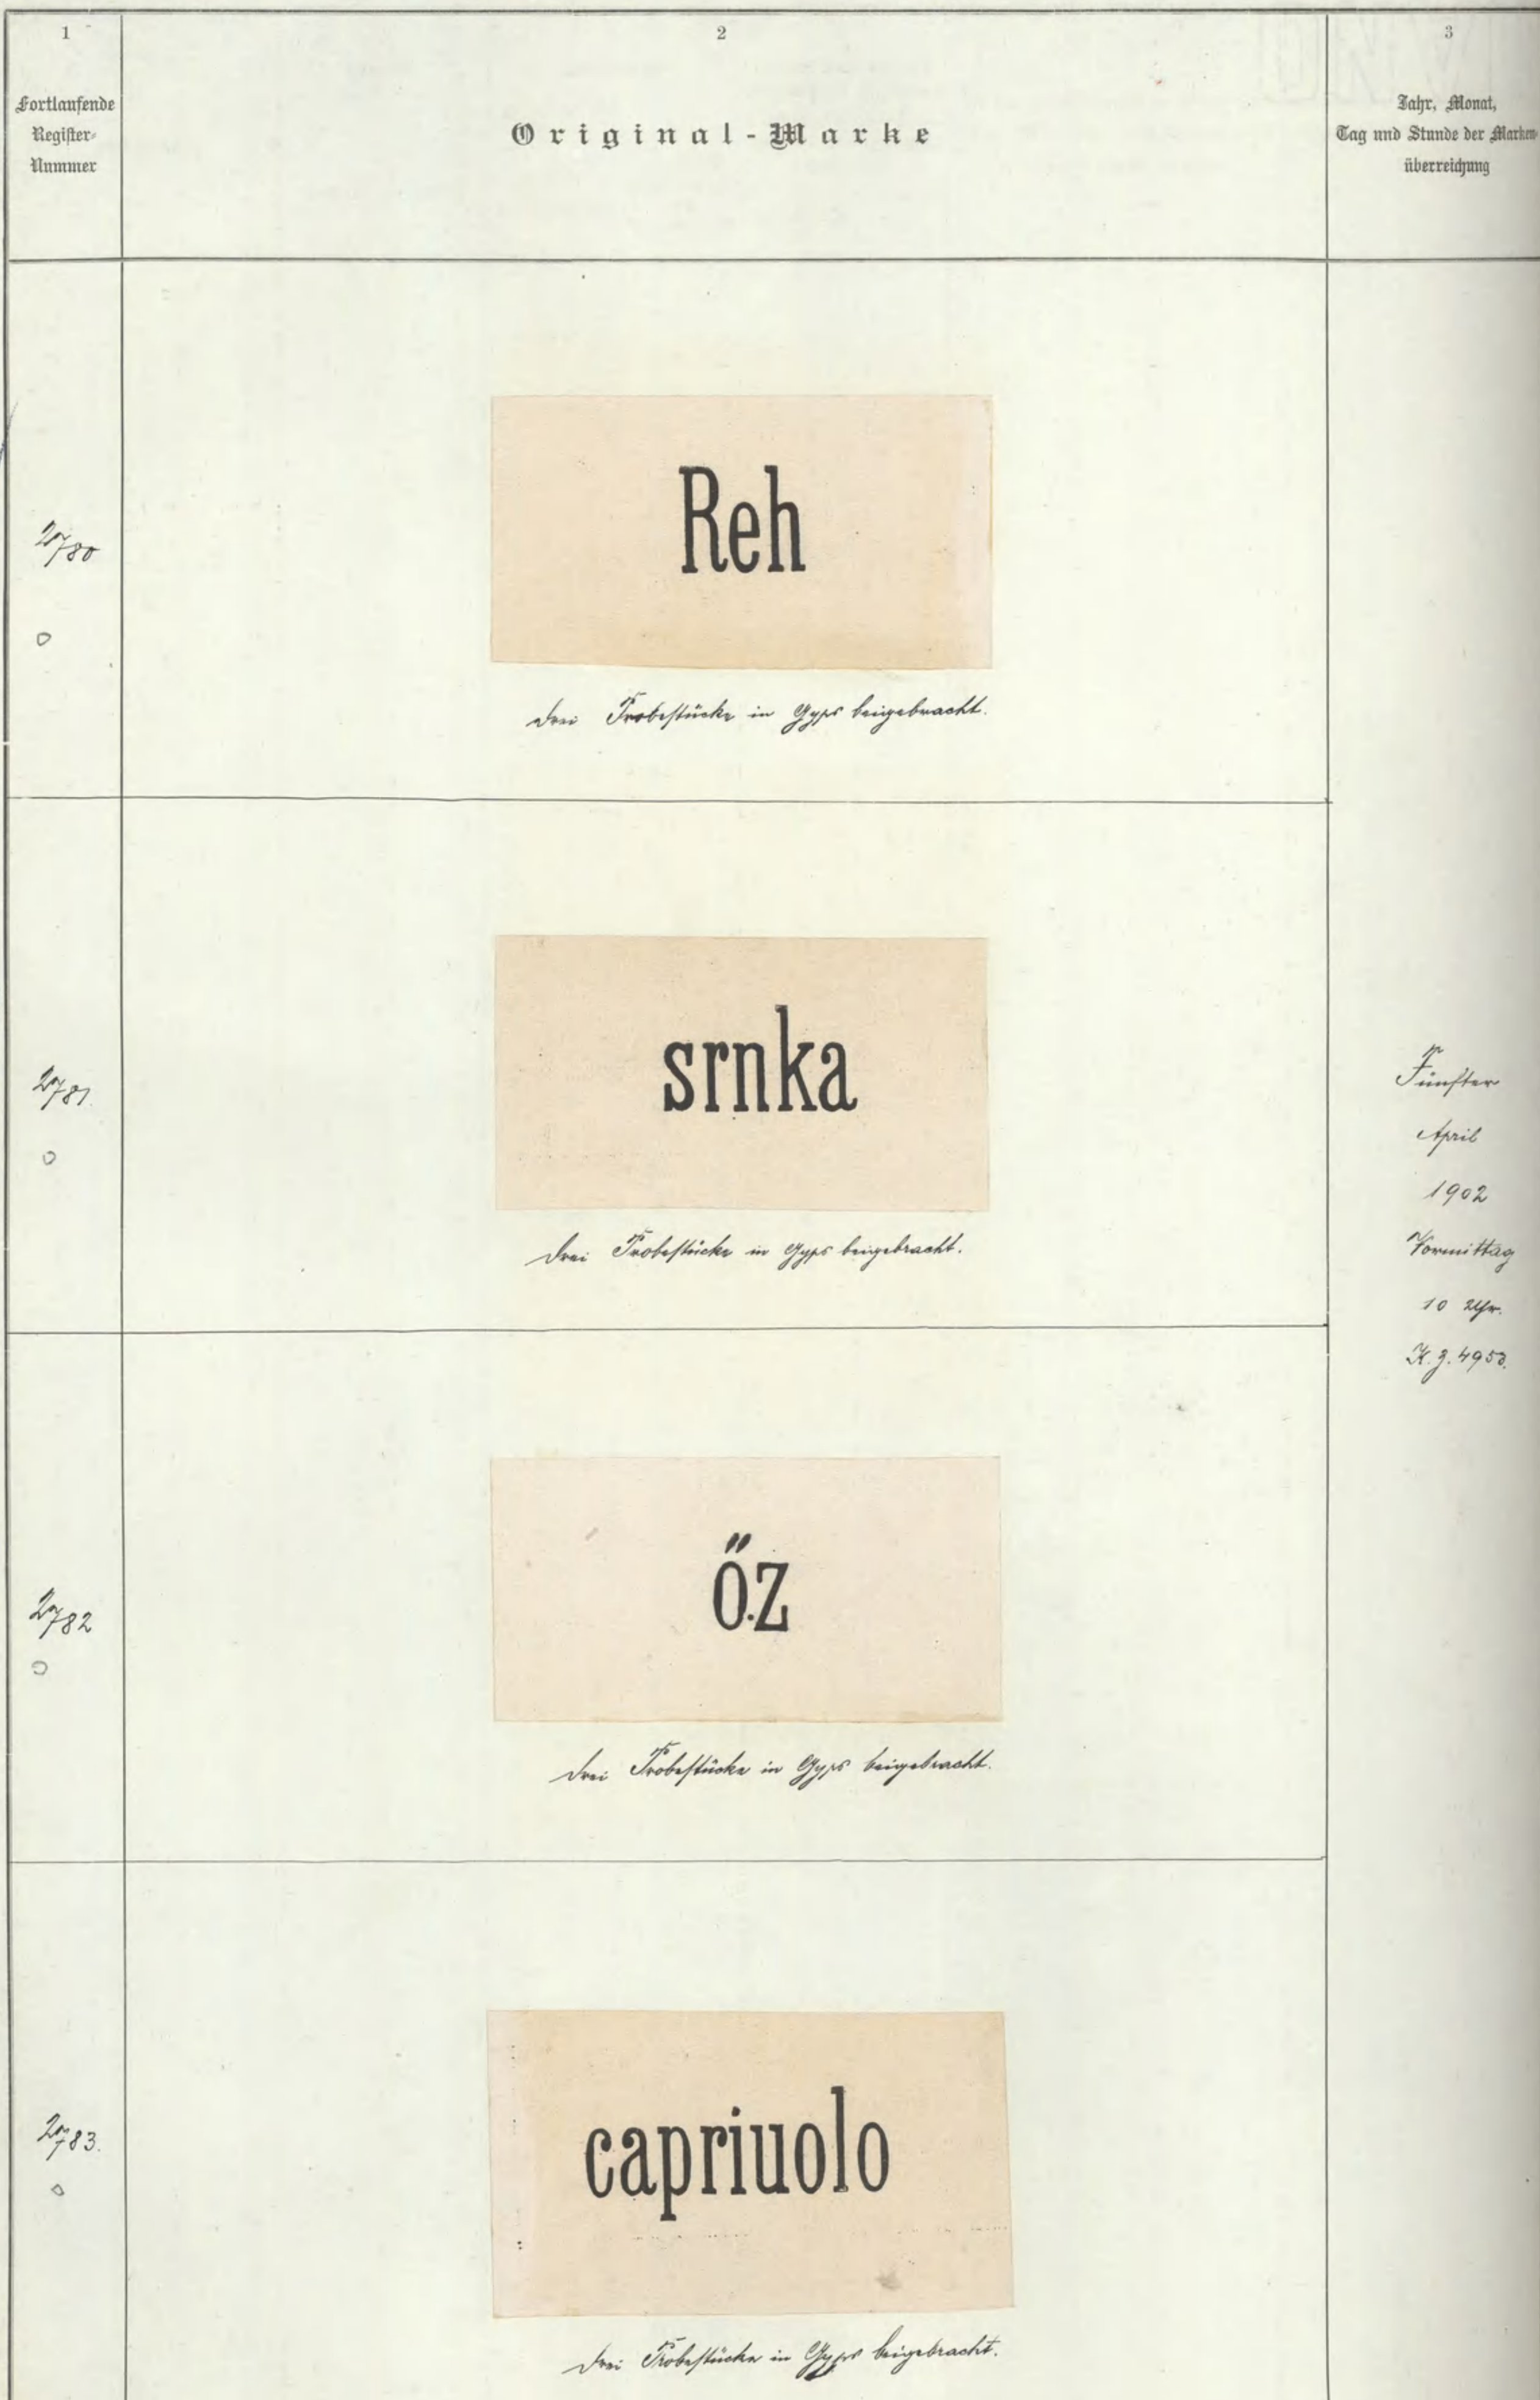 1
Fortlaufende
Register-
Nummer
2
Original-Marke
3
Jahr, Monat,
Tag und Stunde der Marken-
überreichung
2780
Reh
drei Probestücke in Gyps beigebracht.
2781.
srnka
drei Probestücke in Gyps beigebracht.
Fünfter
April
1902
Vormittag
10 Uhr.
K. z. 4953.
2782
ŐZ
drei Probestücke in Gyps beigebracht.
2783.
capriuolo
drei Probestücke in Gyps beigebracht.